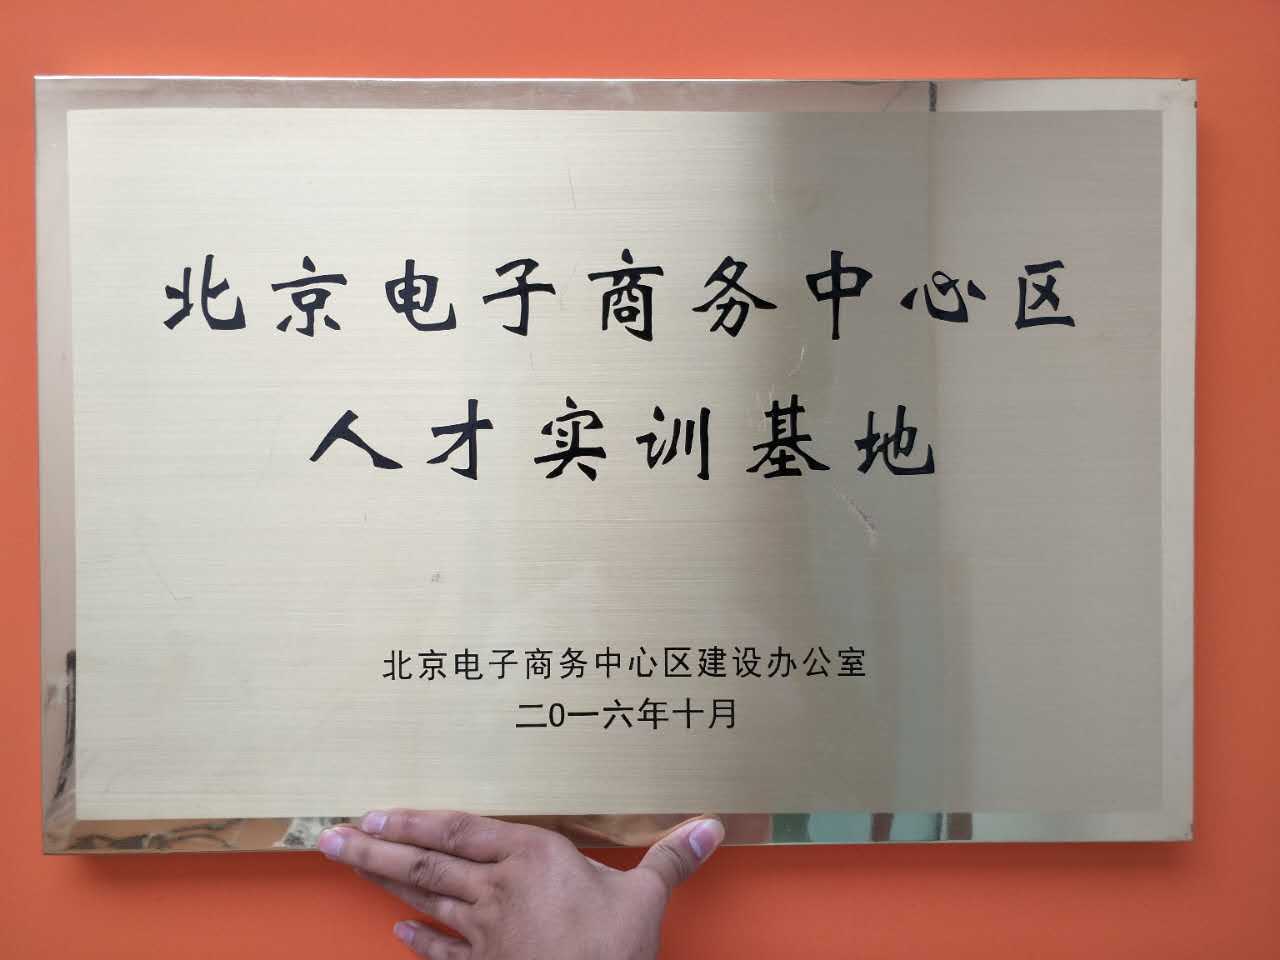 北京电子商务中心区
人才实训基地
北京电子商务中心区建设办公室
二0一六年十月